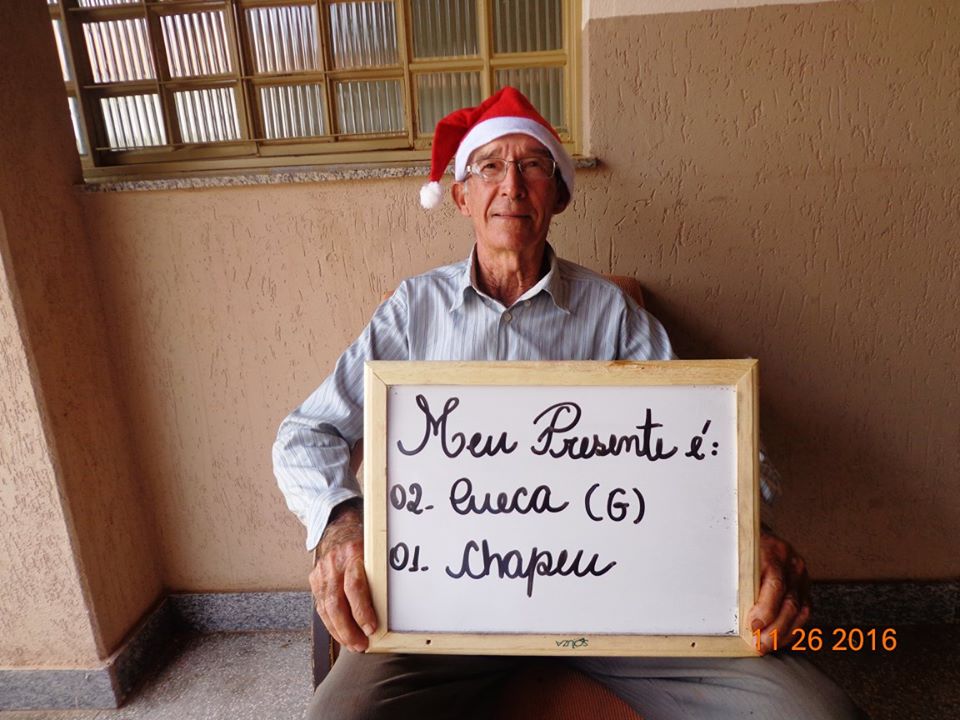 Meu Presente é:
02. Cueca (G)
01. Chapeu
SOUZA
11 26 2016